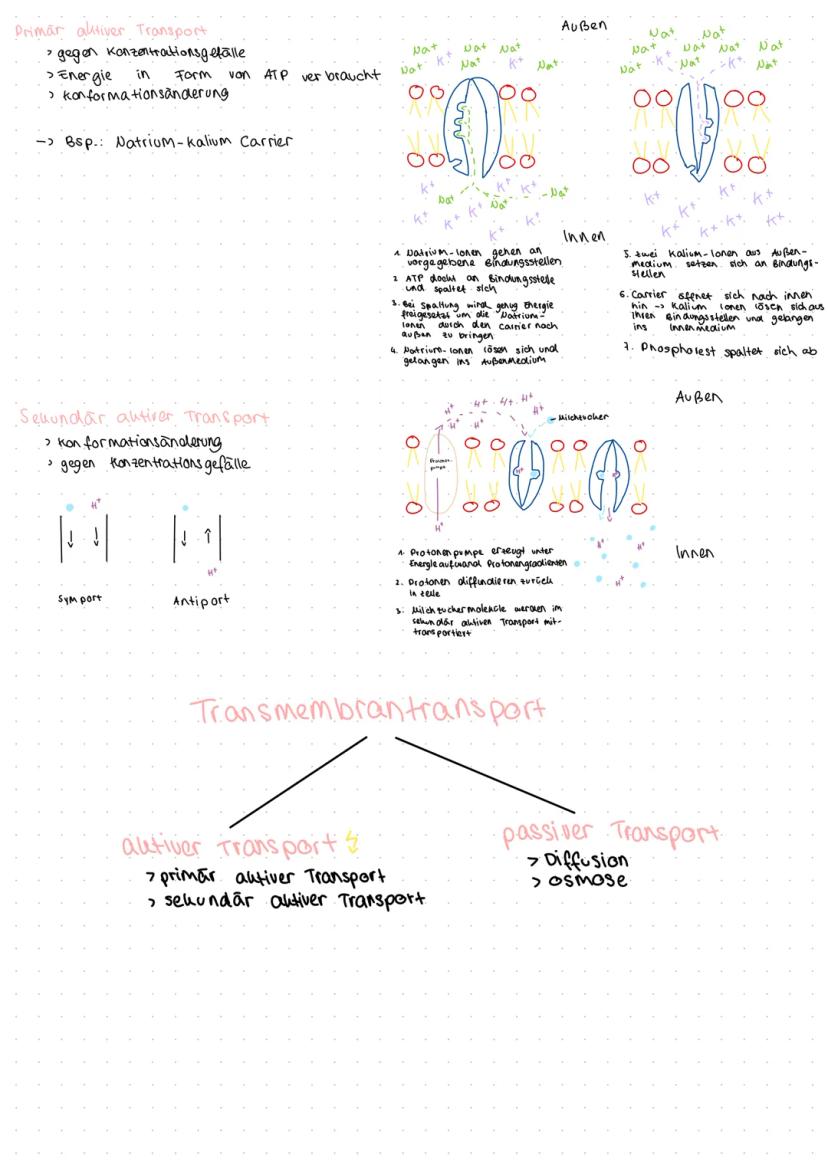 Primär aktiver Transport
> gegen Konzentrationsgefälle
> Energie in Form von ATP verbraucht
> Konformationsänderung
-> Bsp.: Natrium-Kalium Carrier
Außen
Na+ Na+ Na+
Na+ K+ Na+ K+ Na+
K+ K+ K+
Na+ Na+ Na+
K+ K+ K+ K+
K+
Innen
1. Natrium-Ionen gehen an
vorgegebene Bindungsstellen
2. ATP dockt an Bindungsstelle
und spaltet sich
3. Bei Spaltung wird genug Energie
freigesetzt um die Natrium-
Ionen durch den Carrier nach
außen zu bringen
4. Natrium-Ionen lösen sich und
gelangen ins Außenmedium
Na+ Na+
Na+ Na+ Na+
Na+ K+ Na+ K+ Na+
K+ K+
K+ K+
K+ K+ K+ K+
5. zwei Kalium-Ionen aus Außen-
medium setzen sich an Bindungs-
stellen
6. Carrier öffnet sich nach innen
hin -> Kalium Ionen lösen sich aus
ihren Bindungsstellen und gelangen
ins Innenmedium
7. Phospholest spaltet sich ab
Sekundär aktiver Transport
> Konformationsänderung
> gegen Konzentrationsgefälle
H+
H+
Symport
Antiport
Außen
H+ H+ H+ H+
H+ H+ H+ H+
Milchzucker
Protonen-
pumpe
H+ H+
H+
H+ H+
H+
Innen
1. Protonenpumpe erzeugt unter
Energieaufwand Protonengradienten
2. Protonen diffundieren zurück
in Zelle
3. Milchzuckermoleküle werden im
sekundär aktiven Transport mit-
transportiert
Transmembrantransport
aktiver Transport
> primär aktiver Transport
> sekundär aktiver Transport
passiver Transport
> Diffusion
> Osmose